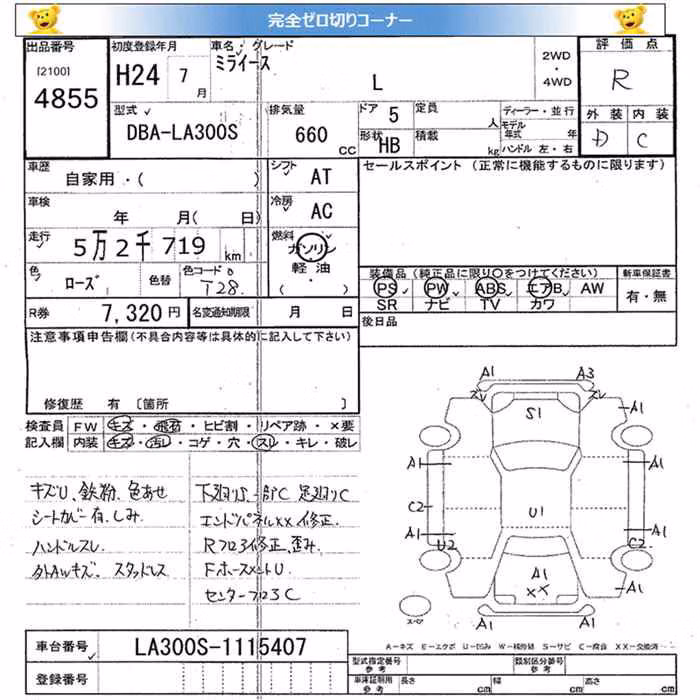 完全ゼロ切りコーナー
出品番号 初度登録年月 車名・グレード 評価点
[2100] 4855 H24 7月 ミライース L 2WD・4WD R
型式 排気量 ドア 5 定員 人 ディーラー・並行 外装 内装
DBA-LA300S 660CC 形状 HB 積載 kg モデル年式 年 ハンドル 左・右 D C
車歴 自家用・( ) シフト AT セールスポイント(正常に機能するものに限ります)
車検 年 月( 日) 冷房 AC
走行 5万2千719km 燃料 ガソリン 軽油・( )
色 ローズ 色替 色コード T28 装備品(純正品に限り○をつけてください) 新車保証書
PS PW ABS エアB AW 有・無
SR ナビ TV カワ
R券 7,320円 名変通知期限 月 日 後日品
注意事項申告欄(不具合内容等は具体的に記入して下さい)
修復歴 有 [箇所 ]
検査員 FW キズ・飛石・ヒビ割・リペア跡・×要
記入欄 内装 キズ・汚レ・コゲ・穴・スレ・キレ・破レ
キズU、鉄粉、色あせ 下廻りS、一部C 足廻りC
シートカバー有、しみ エンドパネルXX修正
ハンドルスレ Rフロア修正、歪み
外AWキズ、スタッドレス FホースメントU
センターフロアC
A1 A3
S1
A1
A1 A1
C2 U1
A1 A1
U2 C2
A1
XX
A1 A1
スペア
A-キズ E-エクボ U-凹み W-補修跡 S-サビ C-腐食 XX-交換済
車台番号 LA300S-1115407
登録番号
型式指定番号 参考 類別区分番号 参考
車庫証明用 参考 長さ cm 幅 cm 高さ cm